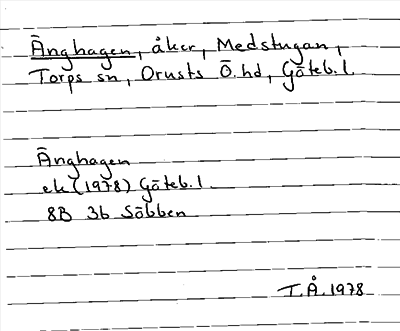 Änghagen, åker, Medstugan,
Torps sn, Orusts Ö. hd, Göteb. l.
Änghagen
ek (1978) Göteb. l
8B 3b Söbben
T.Å. 1978